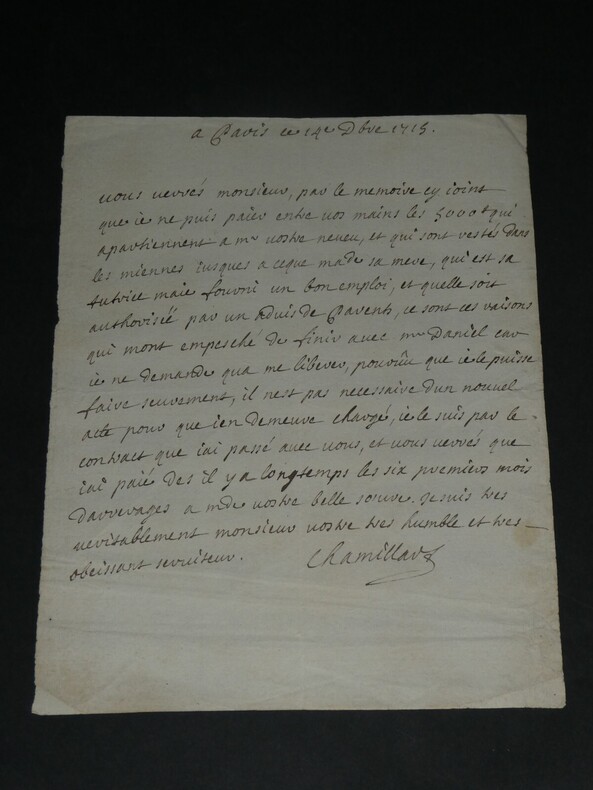 a Paris ce 14e Dbre 1715.
vous verrés monsieur, par le memoire cy ioint
que ie ne puis paier entre vos mains les 5000ᵗ qui
apartiennent a mr vostre neveu, et qui sont restés dans
les miennes iusques a ceque made sa mere, qui est sa
tutrice maie fourni un bon emploi, et quelle soit
authorisée par un aduis de Parents, ce sont ces raisons
qui mont empesché de finir avec mr Daniel car
ie ne demande qua me liberer, pourvüu que ie le puisse
faire seurement, il nest pas necessaire dun nouvel
acte pour que ien demeure chargé, ie le suis par le
contract que iai passé avec vous, et vous verrés que
iai paié des il y a longtemps les six premiers mois
darrerages a mde vostre belle soeure. Je suis tres
veritablement monsieur vostre tres humble et tres
obeissant serviteur. Chamillart